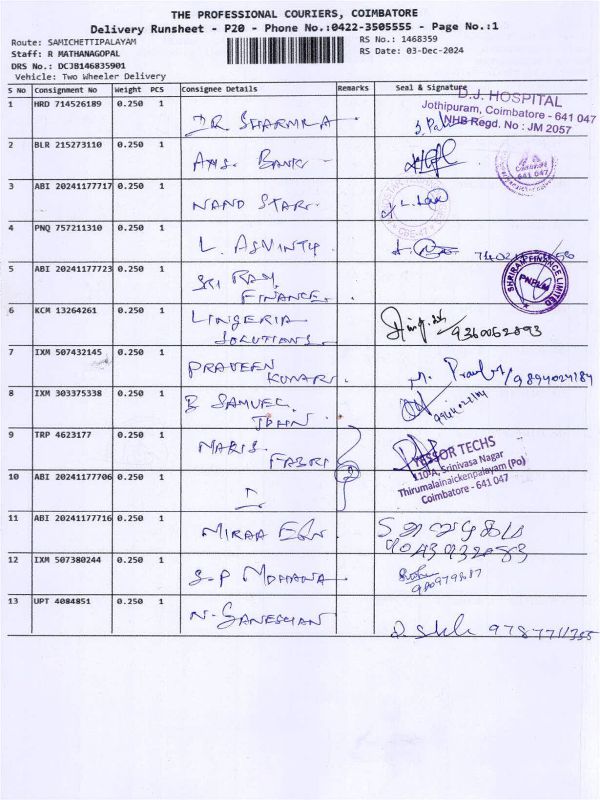 THE PROFESSIONAL COURIERS, COIMBATORE
Delivery Runsheet - P20 - Phone No.:0422-3505555 - Page No.:1
Route: SAMICHETTIPALAYAM
RS No.: 1468359
Staff: R MATHANAGOPAL
RS Date: 03-Dec-2024
DRS No.: DCJB146835901
Vehicle: Two Wheeler Delivery
S No Consignment No Weight PCS Consignee Details Remarks Seal & Signature
D.J. HOSPITAL
Jothipuram, Coimbatore - 641 047
NHB Regd. No : JM 2057
1 HRD 714526189 0.250 1
DR SHARMILA
2 BLR 215273110 0.250 1
Axis Bank
Coimbatore
641 047
3 ABI 20241177717 0.250 1
NAND STAR
CBE-47
4 PNQ 757211310 0.250 1
L. ASVINTH
5 ABI 20241177723 0.250 1
SRI RAM
FINANCE
SHRIRAM FINANCE LIMITED
6 KCM 13264261 0.250 1
LINGERIA
SOLUTIONS
9360052893
7 IXM 507432145 0.250 1
PRAVEEN
KUMAR
9894024184
8 IXM 303375338 0.250 1
B SAMUEL
JOHN
9 TRP 4623177 0.250 1
MARIS
FABRI
TESSOR TECHS
110/A, Srinivasa Nagar
Thirumalainaickenpalayam (Po)
Coimbatore - 641 047
10 ABI 20241177706 0.250 1
11 ABI 20241177716 0.250 1
MIRAA
12 IXM 507380244 0.250 1
S.P MOHANA
13 UPT 4084851 0.250 1
N. GANESHAN